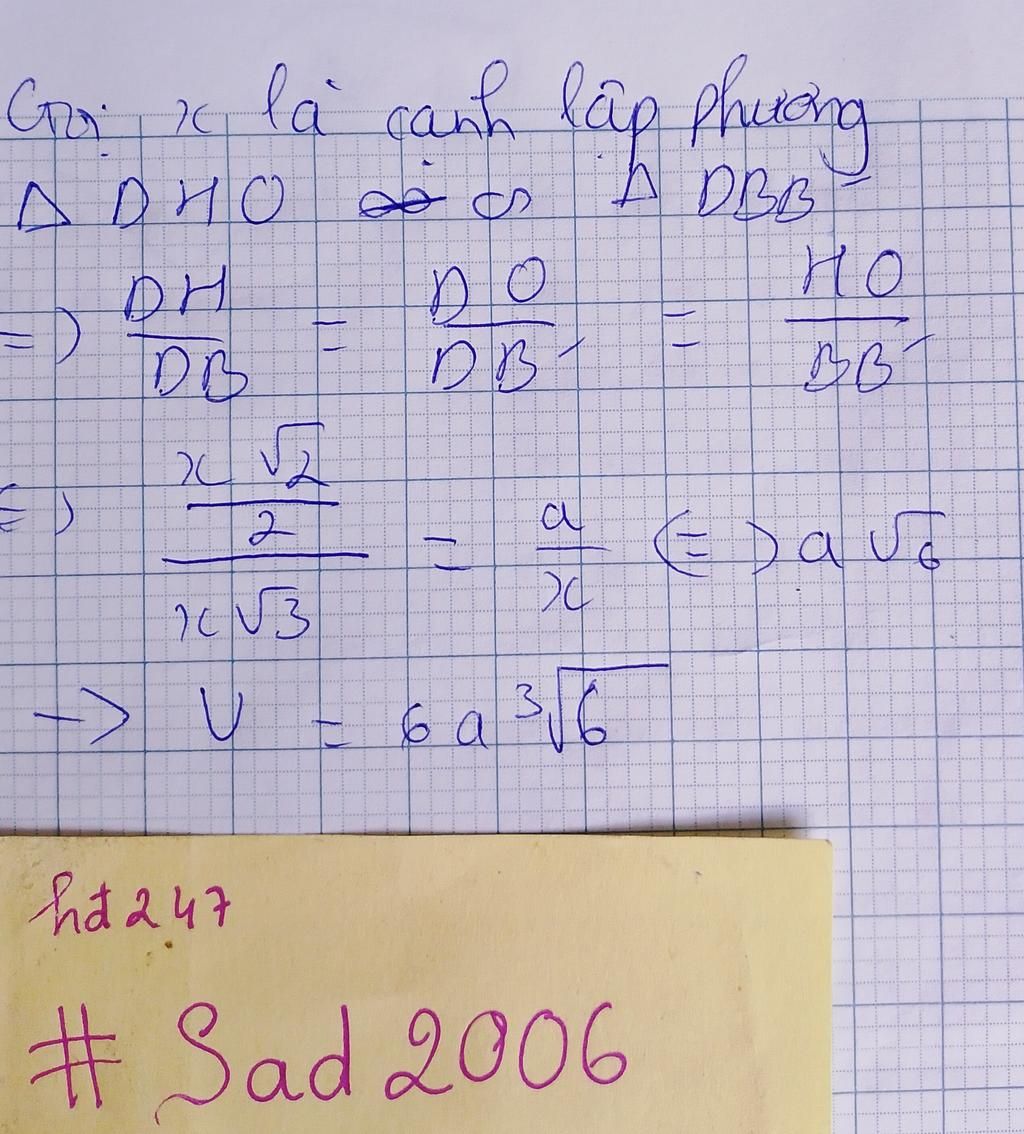 Gọi x là cạnh lập phương
Δ DHO ∽ Δ DBB'
=) DH/DB = DO/DB' = HO/BB'
(=) (x√2/2)/(x√3) = a/x (=) a√6
-> V = 6a ³√6
hđ247
# Sad 2006